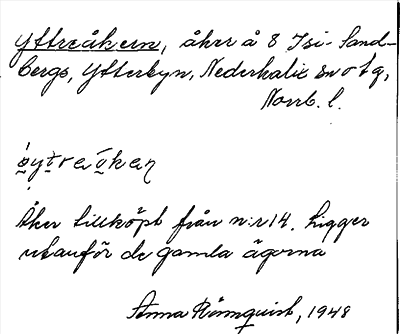 Yttreåkern, åker å 8 Isi- Sand-
bergs, Ytterbyn, Nederkalix sn o tg,
Norrb. l.
ýtreåkeɳ
Åker tillköpt från n:r 14. Ligger
utanför de gamla ägorna
Anna Rönnquist, 1948